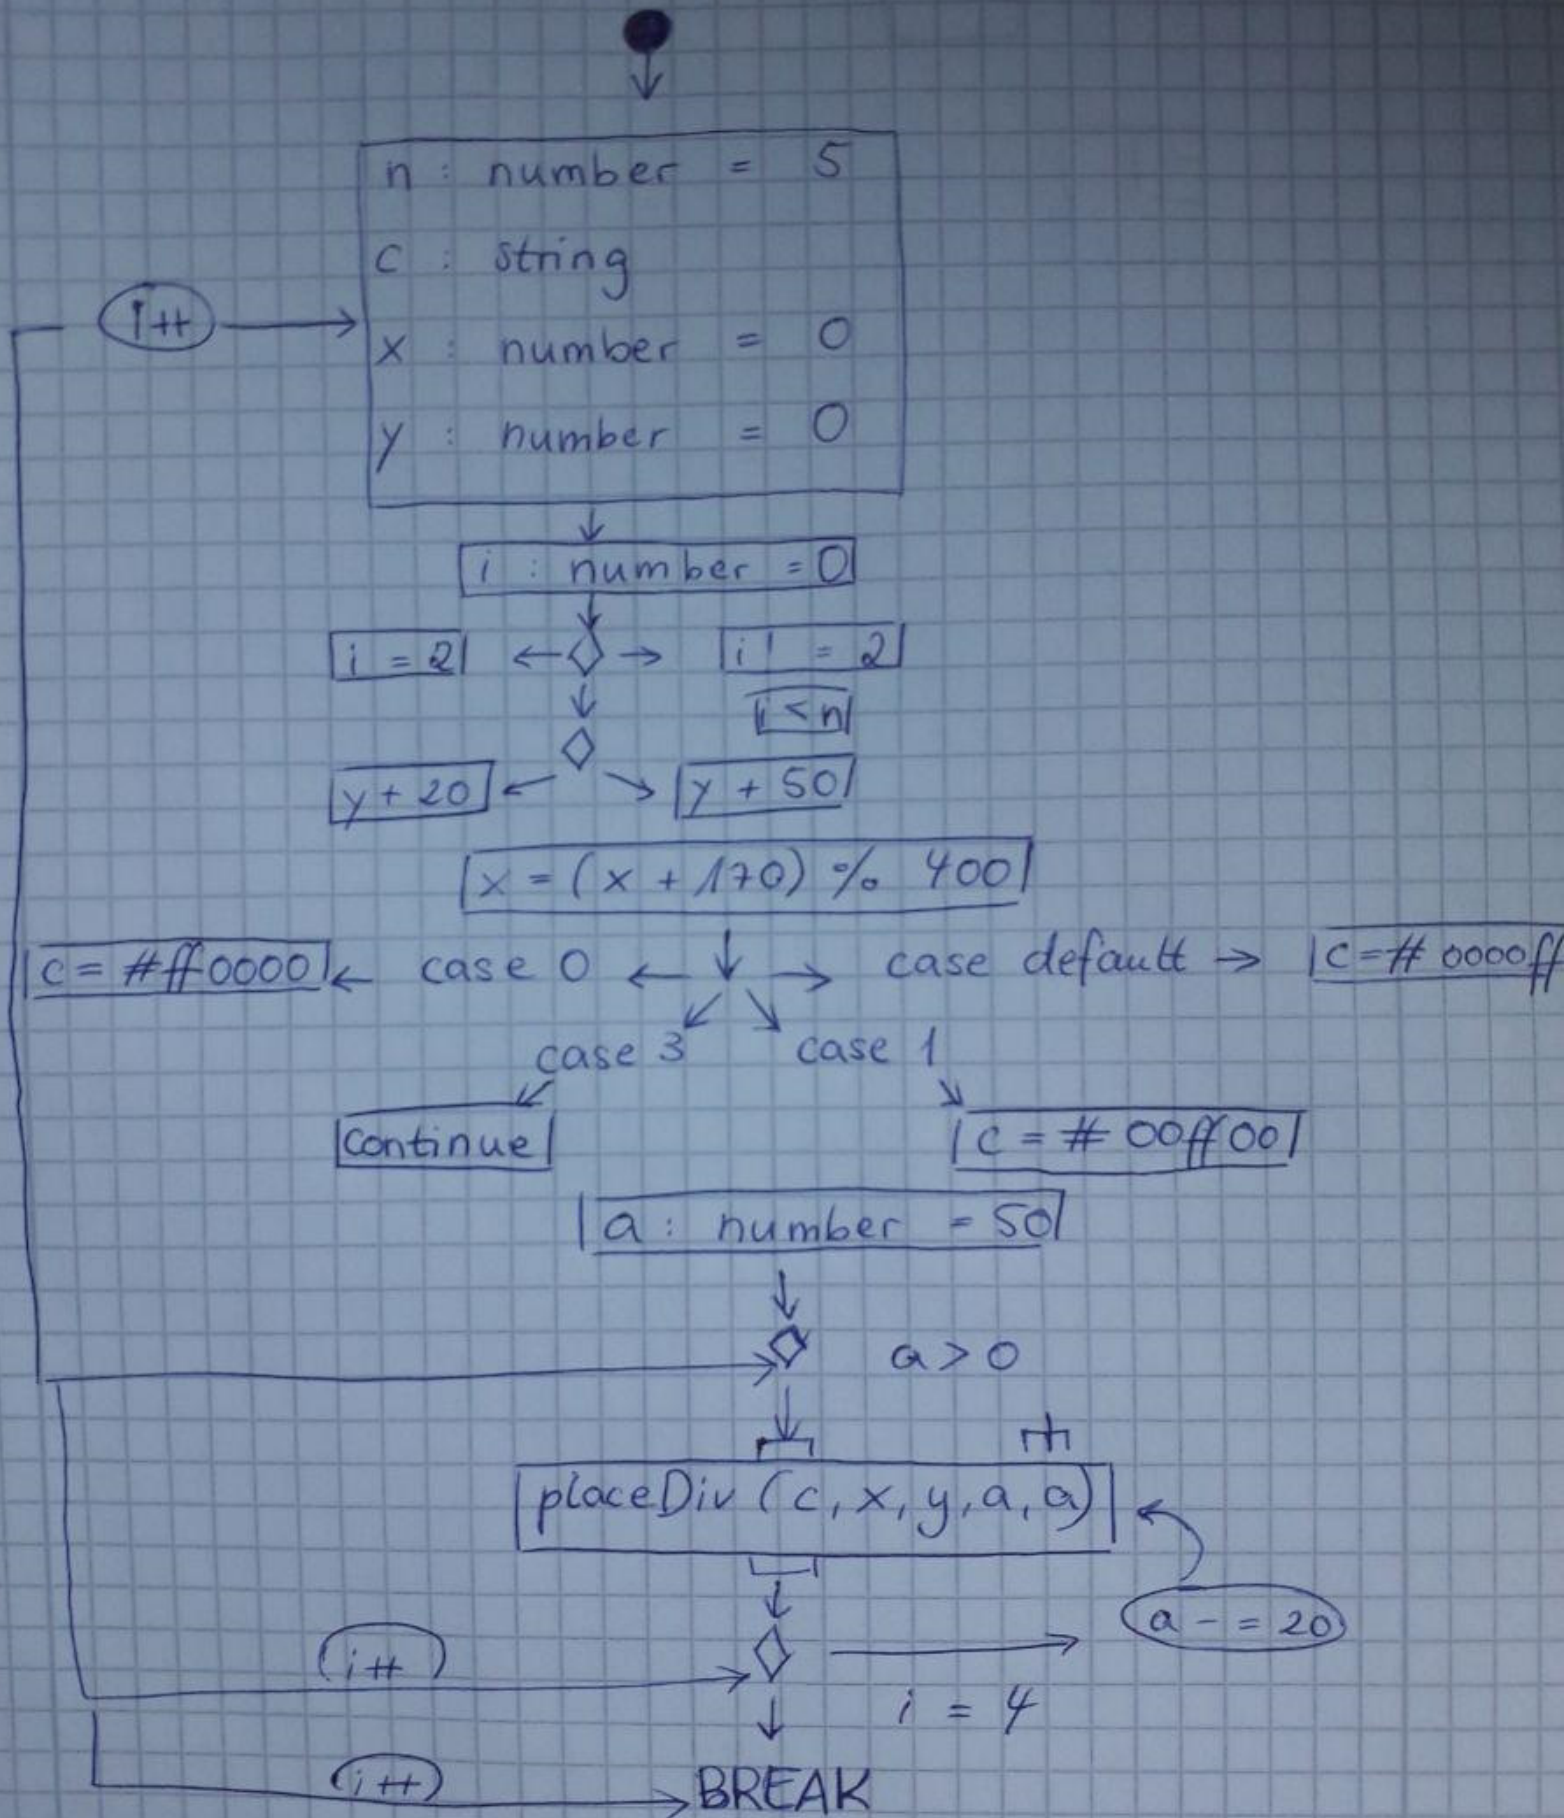 n : number = 5
c : string
i++
x : number = 0
y : number = 0
i : number = 0
i = 2
i ! = 2
i < n
y + 20
y + 50
x = (x + 170) % 400
c = #ff0000
case 0
case default
c = # 0000ff
case 3
case 1
continue
c = # 00ff00
a : number = 50
a > 0
placeDiv (c, x, y, a, a)
a - = 20
i++
i = 4
i++
BREAK